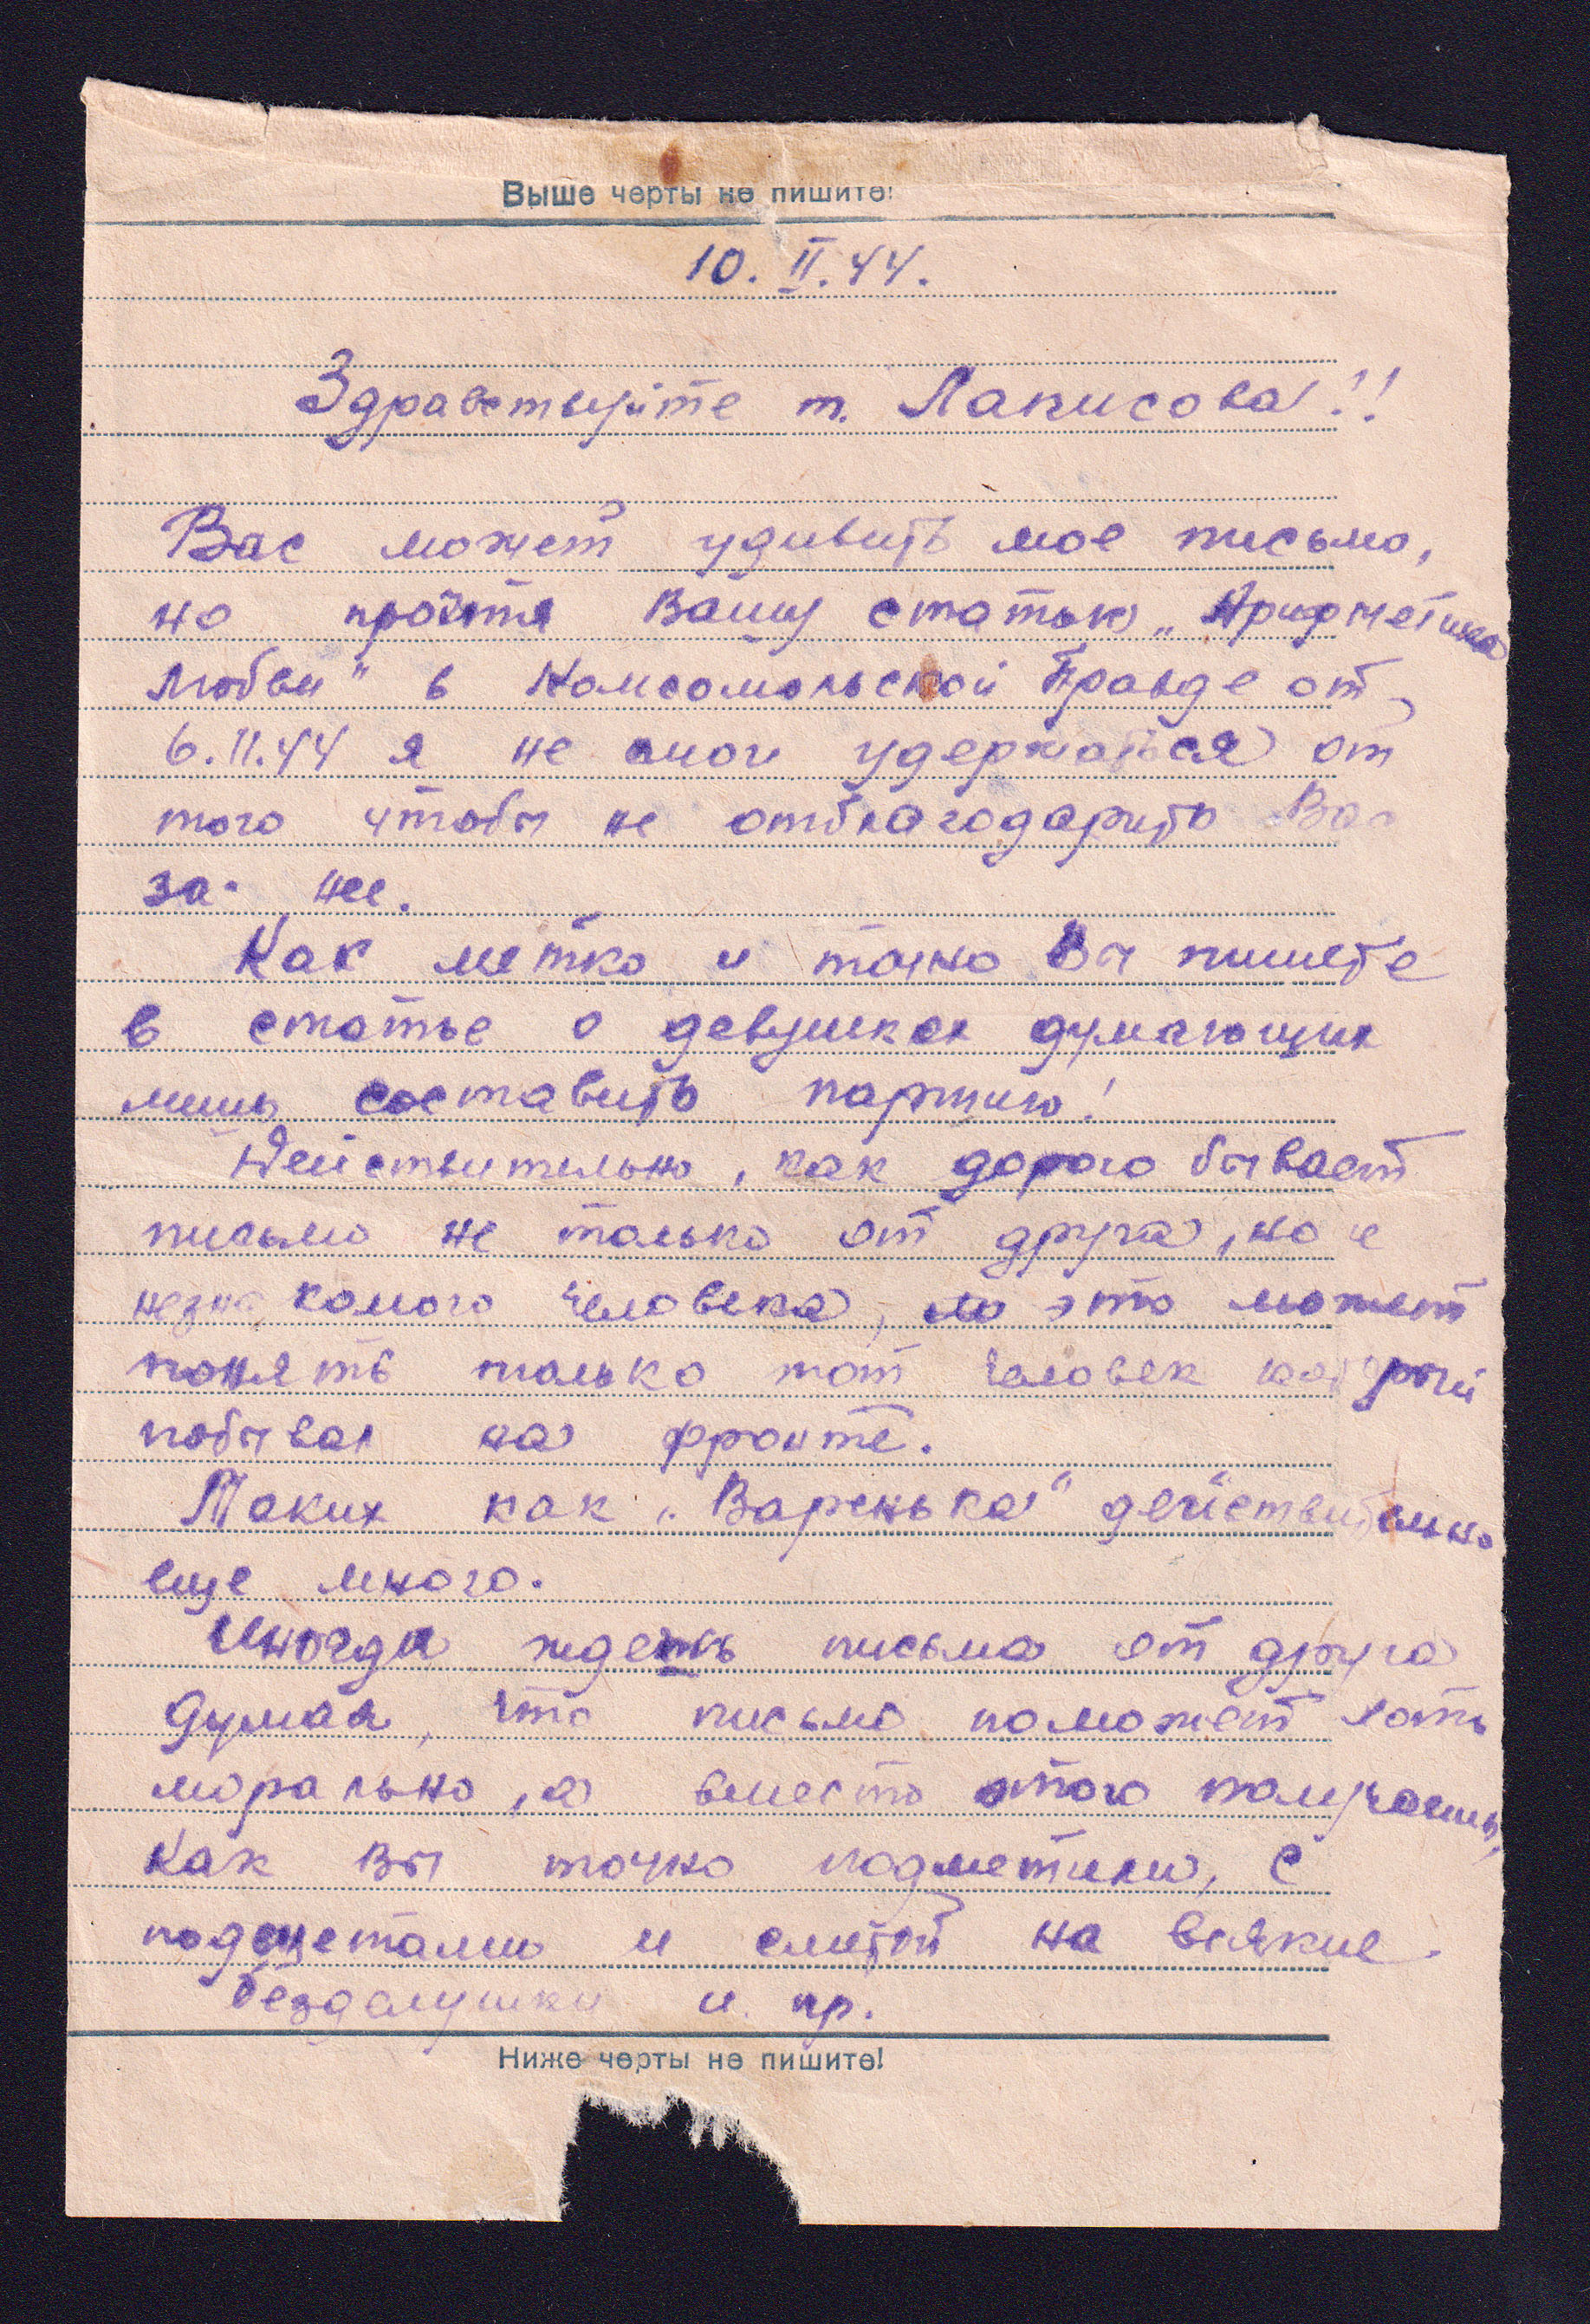 Выше черты не пишите!
10. II. 44.
Здравствуйте т. Лаписова!!
Вас может удивить мое письмо,
но прочтя Вашу статью „Арифметика
Любви" в Комсомольской Правде от
6.II.44 я не смог удержаться от
того чтобы не отблагодарить Вас
за нее.
Как метко и точно Вы пишете
в статье о девушках думающих
лишь составить партию!
Действительно, как дорого бывает
письмо не только от друга, но и
незнакомого человека, но это может
понять только тот человек который
побывал на фронте.
Таких как „Варенька" действительно
еще много.
Иногда ждешь письма от друга
думая, что письмо поможет хоть
морально, а вместо этого получаешь,
как Вы точно подметили, с
подсчетами и сметой на всякие
безделушки и пр.
Ниже черты не пишите!